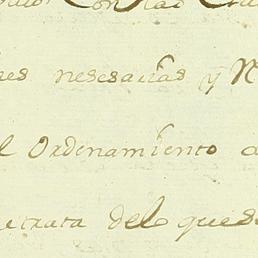 nes nesesarias y N
l Ordenamiento a
etrata del ques